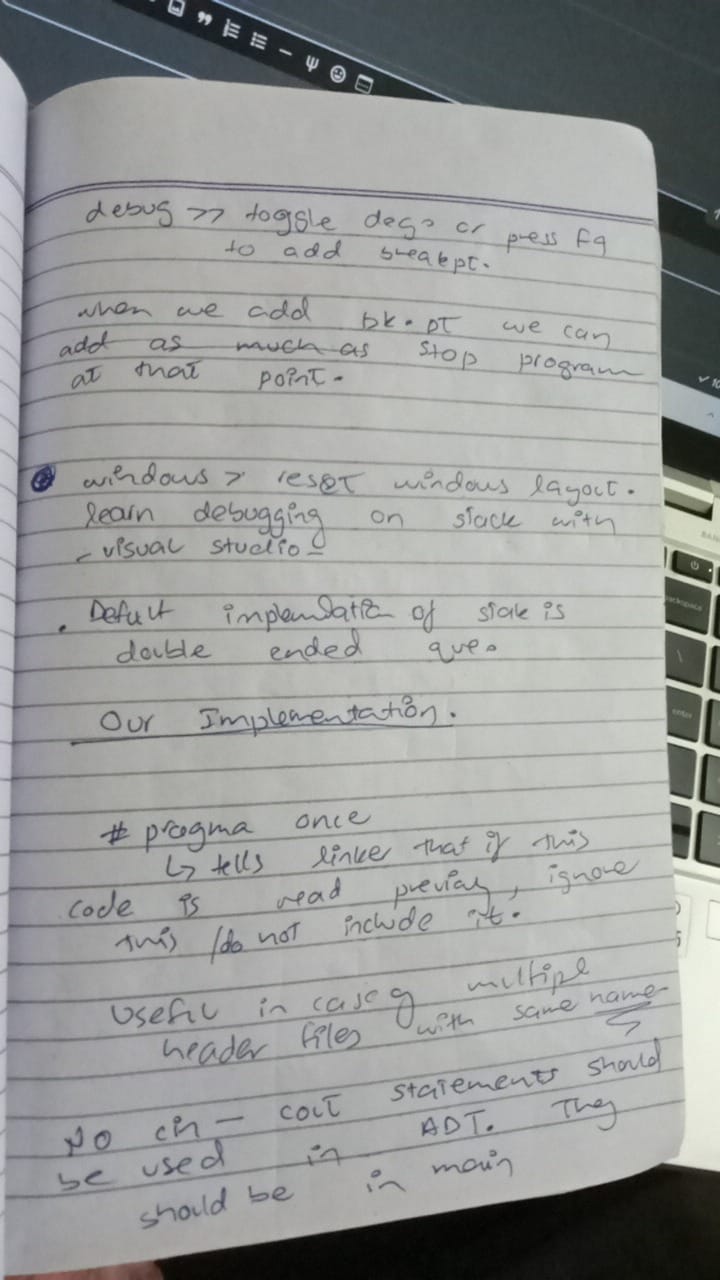 debug >> toggle deg> or press F9
to add breakpt.
when we add bk.pt we can
add as much as stop program
at that point.
windows > reset windows layout.
learn debugging on stack with
- visual studio -
. Defult implemdatin of stak is
double ended que.
Our Implementation.
# pragma once
↳ tells linker that if this
code is read previosly, ignore
this /do not include it.
Useful in case of multipl
header files with same name
No cin - cout statements should
be used in ADT. They
should be in main
backspace
\
enter